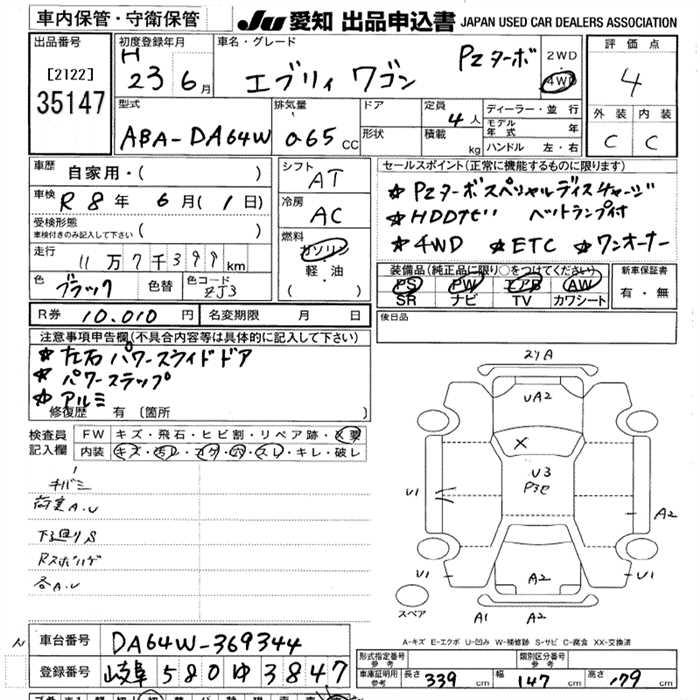 車内保管・守衛保管
JU 愛知 出品申込書 JAPAN USED CAR DEALERS ASSOCIATION
出品番号
[2122]
35147
初度登録年月
H 23年 6月
車名・グレード
エブリィ ワゴン PZターボ
2WD
4WD
評価点
4
外装 内装
C C
型式
ABA-DA64W
排気量
065 CC
ドア
形状
定員
4人
積載
kg
ディーラー・並行
モデル年式 年
ハンドル 左・右
車歴
自家用・( )
車検
R 8年 6月(1日)
受検形態
車検付きのみ記入して下さい ( )
走行
11万7千399km
色
ブラック
色替
色コード
ZJ3
シフト
AT
冷房
AC
燃料
ガソリン
軽・油
( )
セールスポイント(正常に機能するものに限ります)
☆PZターボスペシャルディスチャージ
☆HDDナビ ヘットランプ付
☆4WD ☆ETC ☆ワンオーナー
装備品(純正品に限り○をつけてください)
PS PW エアB AW
SR ナビ TV カワシート
新車保証書
有・無
R券 10.010円
名変期限 月 日
後日品
注意事項申告欄(不具合内容等は具体的に記入して下さい)
☆左右パワースライドドア
☆パワーステップ
☆アルミ
修復歴 有 〔箇所 〕
検査員
記入欄
FW キズ・飛石・ヒビ割・リペア跡・X要
内装 キズ・汚レ・コゲ・穴・スレ・キレ・破レ
荷室A.U
下廻りS
各A.U
2ﾘA
UA2
X
U3
U1
A2
U1
A2
U1
スペア
A1
A2
A-キズ E-エクボ U-凹み W-補修跡 S-サビ C-腐食 XX-交換済
車台番号
DA64W-369344
登録番号
岐阜 580 ゆ 3847
形式指定番号
参考
類別区分番号
参考
車庫証明用
参考
長さ 339cm 幅 147cm 高さ 179cm